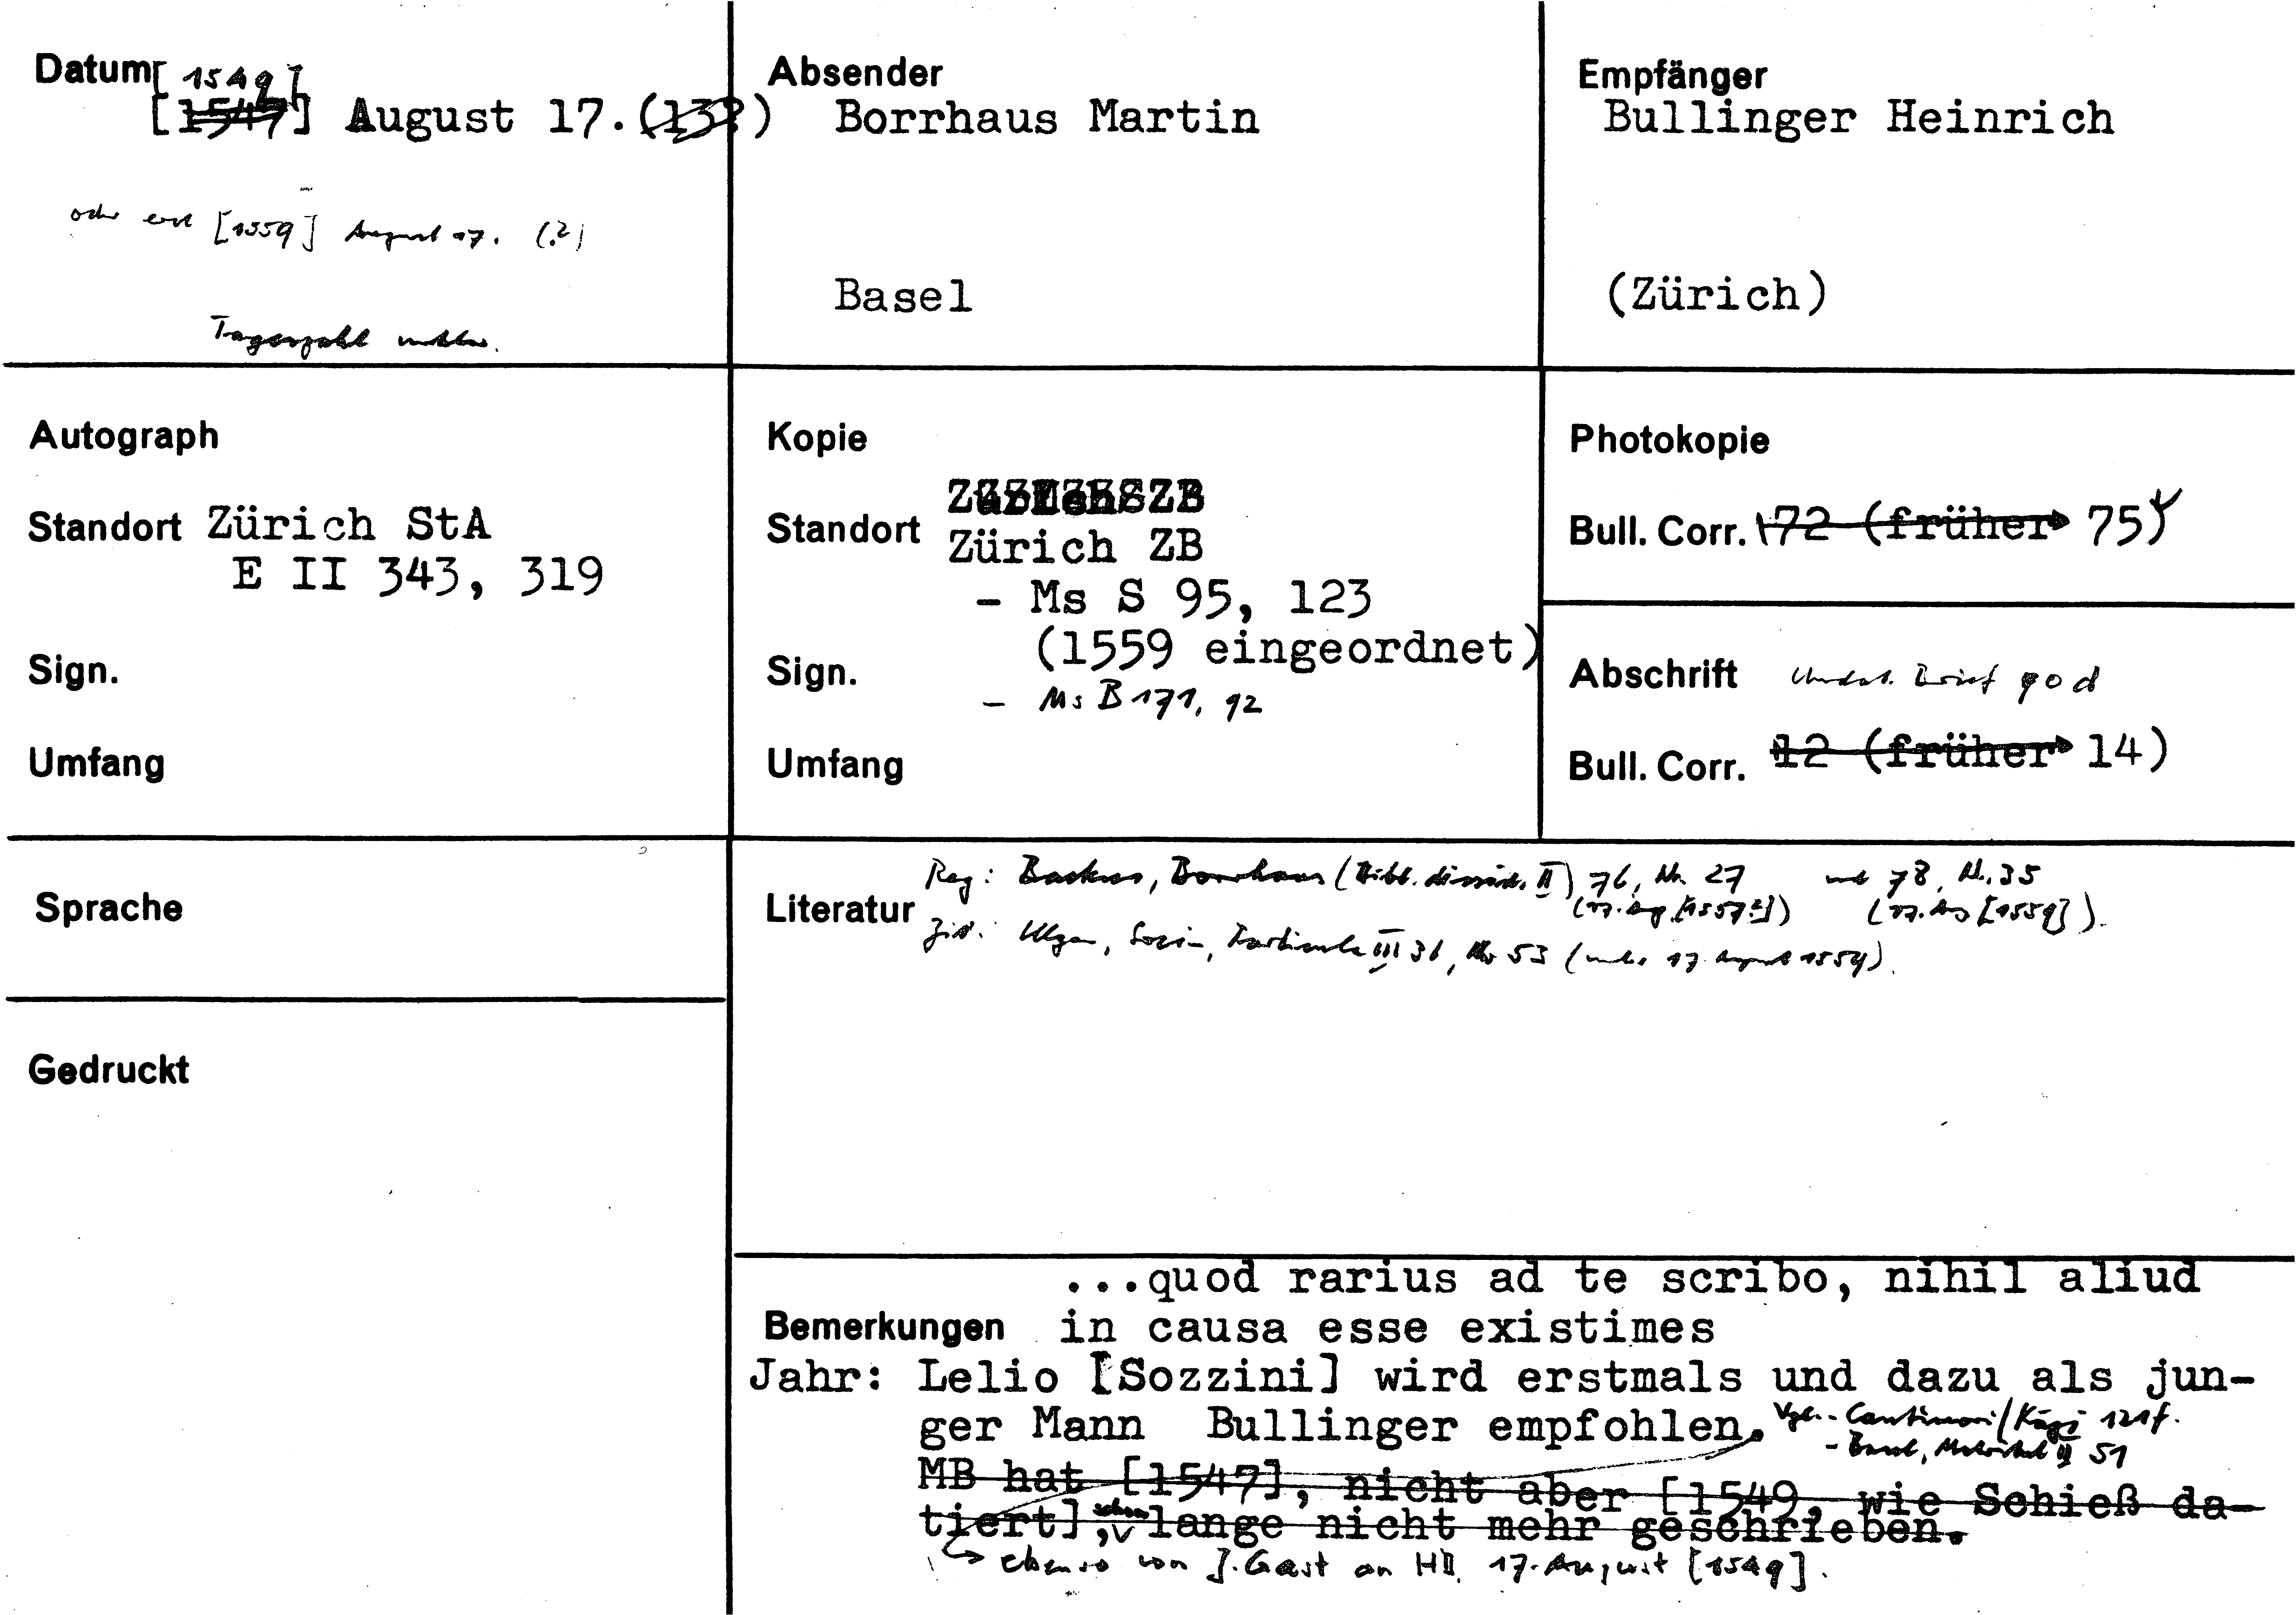 Datum
[1549]
[1547] August 17. (13?)
oder erst [1559] August 17. (?)
Tageszahl
Absender
Borrhaus Martin
Basel
Empfänger
Bullinger Heinrich
(Zürich)
Autograph
Standort Zürich StA
E II 343, 319
Sign.
Umfang
Kopie
Standort
Zürich ZB
- Ms S 95, 123
(1559 eingeordnet)
Sign.
- Ms B 171, 92
Umfang
Photokopie
Bull. Corr. 172 (früher 75)
Abschrift Undat. Brief 90 d
Bull. Corr. 12 (früher 14)
Sprache
Gedruckt
Literatur
Reg: Backus, Borrhaus (Bibl. dissid. II) 76, Nr. 27 und 78, Nr. 35
(17. Aug. [1557?]) (17. Aug [1559]).
Zit: III 36, 53 17 August 1559).
...quod rarius ad te scribo, nihil aliud
Bemerkungen in causa esse existimes
Jahr: Lelio [Sozzini] wird erstmals und dazu als jun-
ger Mann Bullinger empfohlen. Vgl. - Cantimori/Kägi 121f.
51
MB hat [1547], nicht aber [1549, wie Schieß da-
tiert], schon lange nicht mehr geschrieben.
ebenso von J. Gast an HB, 17. August [1549].